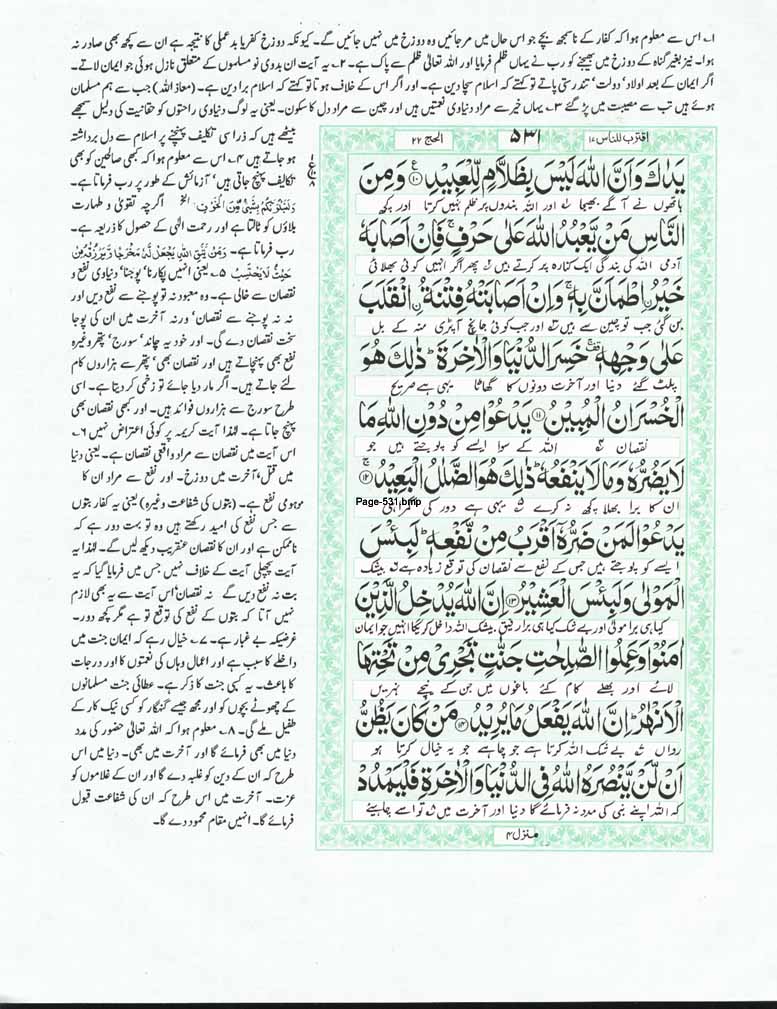 ۱۔ اس سے معلوم ہوا کہ کفار کے ناسمجھ بچے جو اس حال میں مر جائیں وہ دوزخ میں نہیں جائیں گے۔ کیونکہ دوزخ کفر یا بدعملی کا نتیجہ ہے ان سے کچھ بھی صادر نہ
ہوا۔ نیز بغیر گناہ کے دوزخ میں بھیجنے کو رب نے یہاں ظلم فرمایا اور اللہ تعالیٰ ظلم سے پاک ہے۔ ۲۔ یہ آیت ان بدوی نو مسلموں کے متعلق نازل ہوئی جو ایمان لاتے۔
اگر ایمان کے بعد اولاد' دولت' تندرستی پاتے تو کہتے کہ اسلام سچا دین ہے۔ اور اگر اس کے خلاف ہوتا تو کہتے کہ اسلام برا دین ہے۔ (معاذ اللہ) جب سے ہم مسلمان
ہوئے ہیں تب سے مصیبت میں پڑ گئے ۳۔ یہاں خیر سے مراد دنیاوی نعمتیں ہیں اور چین سے مراد دل کا سکون۔ یعنی یہ لوگ دنیاوی راحتوں کو حقانیت کی دلیل سمجھے
بیٹھے ہیں کہ ذرا سی تکلیف پہنچنے پر اسلام سے دل برداشتہ
ہو جاتے ہیں ۴۔ اس سے معلوم ہوا کہ کبھی صالحین کو بھی
تکالیف پہنچ جاتی ہیں' آزمائش کے طور پر رب فرماتا ہے۔
وَلَنَبْلُوَنَّكُمْ بِشَىْءٍ مِّنَ الْخَوْفِ الخ اگرچہ تقویٰ و طہارت
بلاؤں کو ٹالتا ہے اور رحمت الٰہی کے حصول کا ذریعہ ہے۔
رب فرماتا ہے۔ وَمَنْ يَّتَّقِ اللهَ يَجْعَلْ لَّهٗ مَخْرَجًا وَّيَرْزُقْهُ مِنْ
حَيْثُ لَا يَحْتَسِبُ ۵۔ یعنی انہیں پکارنا' پوجنا' دنیاوی نفع و
نقصان سے خالی ہے۔ وہ معبود نہ تو پوجنے سے نفع دیں اور
نہ نہ پوجنے سے نقصان' ورنہ آخرت میں ان کی پوجا
سخت نقصان دے گی۔ اور خود یہ چاند' سورج' پتھر وغیرہ
نفع بھی پہنچاتے ہیں اور نقصان بھی' پتھر سے ہزاروں کام
لئے جاتے ہیں۔ اگر مار دیا جائے تو زخمی کر دیتا ہے۔ اسی
طرح سورج سے ہزاروں فوائد ہیں۔ اور کبھی نقصان بھی
پہنچ جاتا ہے۔ لہٰذا آیت کریمہ پر کوئی اعتراض نہیں ۶۔
اس آیت میں نقصان سے مراد واقعی نقصان ہے۔ یعنی دنیا
میں قتل' آخرت میں دوزخ۔ اور نفع سے مراد ان کا
موہومی نفع ہے۔ (بتوں کی شفاعت وغیرہ) یعنی یہ کفار بتوں
سے جس نفع کی امید رکھتے ہیں وہ تو بہت دور ہے کہ
ناممکن ہے اور ان کا نقصان عنقریب دیکھ لیں گے۔ لہٰذا یہ
آیت پچھلی آیت کے خلاف نہیں جس میں فرمایا گیا کہ یہ
بت نہ نفع دیں گے نہ نقصان' اس آیت سے یہ بھی لازم
نہیں آتا کہ بتوں کے نفع کی توقع تو ہے مگر کچھ دور۔
غرضیکہ بے غبار ہے۔ ۷۔ خیال رہے کہ ایمان جنت میں
داخلے کا سبب ہے اور اعمال وہاں کی نعمتوں کا اور درجات
کا باعث۔ یہ کسبی جنت کا ذکر ہے۔ عطائی جنت مسلمانوں
کے چھوٹے بچوں کو اور مجھ جیسے گنہگار کو کسی نیک کار کے
طفیل ملے گی۔ ۸۔ معلوم ہوا کہ اللہ تعالیٰ حضور کی مدد
دنیا میں بھی فرمائے گا اور آخرت میں بھی۔ دنیا میں اس
طرح کہ ان کے دین کو غلبہ دے گا اور ان کے غلاموں کو
عزت۔ آخرت میں اس طرح کہ ان کی شفاعت قبول
فرمائے گا۔ انہیں مقام محمود دے گا۔
اقترب للناس ۱۷ ۵۳۱ الحج ۲۲
يَدٰكَ وَاَنَّ اللهَ لَيْسَ بِظَلَّامٍ لِّلْعَبِيْدِ ﴿۱۰﴾ وَمِنَ
ہاتھوں نے آگے بھیجا اور اللہ بندوں پر ظلم نہیں کرتا اور کچھ
النَّاسِ مَنْ يَّعْبُدُ اللهَ عَلٰى حَرْفٍ ۚ فَاِنْ اَصَابَهٗ
آدمی اللہ کی بندگی ایک کنارہ پر کرتے ہیں پھر اگر انہیں کوئی بھلائی
خَيْرُ ِۨاطْمَاَنَّ بِهٖ ۚ وَاِنْ اَصَابَتْهُ فِتْنَةُ ِۨانْقَلَبَ
بن گئی جب تو چین سے ہیں اور جب کوئی جانچ آپڑی منہ کے بل
عَلٰى وَجْهِهٖ ۚ خَسِرَ الدُّنْيَا وَالْاٰخِرَةَ ؕ ذٰلِكَ هُوَ
پلٹ گئے دنیا اور آخرت دونوں کا گھاٹا یہی ہے صریح
الْخُسْرَانُ الْمُبِيْنُ ﴿۱۱﴾ يَدْعُوْا مِنْ دُوْنِ اللهِ مَا
نقصان اللہ کے سوا ایسے کو پوجتے ہیں جو
لَا يَضُرُّهٗ وَمَا لَا يَنْفَعُهٗ ؕ ذٰلِكَ هُوَ الضَّلٰلُ الْبَعِيْدُ ﴿۱۲﴾
Page-531.bmp
ان کا برا بھلا کچھ نہ کرے یہی ہے دور کی
يَدْعُوْا لَمَنْ ضَرُّهٗۤ اَقْرَبُ مِنْ نَّفْعِهٖ ؕ لَبِئْسَ
ایسے کو پوجتے ہیں جس کے نفع سے نقصان کی توقع زیادہ ہے بیشک
الْمَوْلٰى وَلَبِئْسَ الْعَشِيْرُ ﴿۱۳﴾ اِنَّ اللهَ يُدْخِلُ الَّذِيْنَ
کیا ہی برا مولیٰ اور بے شک کیا ہی برا رفیق بیشک اللہ داخل کریگا انہیں جو ایمان
اٰمَنُوْا وَعَمِلُوا الصّٰلِحٰتِ جَنّٰتٍ تَجْرِىْ مِنْ تَحْتِهَا
لائے اور بھلے کام کئے باغوں میں جن کے نیچے نہریں
الْاَنْهٰرُ ؕ اِنَّ اللهَ يَفْعَلُ مَا يُرِيْدُ ﴿۱۴﴾ مَنْ كَانَ يَظُنُّ
رواں بے شک اللہ کرتا ہے جو چاہے جو یہ خیال کرتا ہو
اَنْ لَّنْ يَّنْصُرَهُ اللهُ فِى الدُّنْيَا وَالْاٰخِرَةِ فَلْيَمْدُدْ
کہ اللہ اپنے نبی کی مدد نہ فرمائے گا دنیا اور آخرت میں تو اسے چاہیئے
منزل ۴